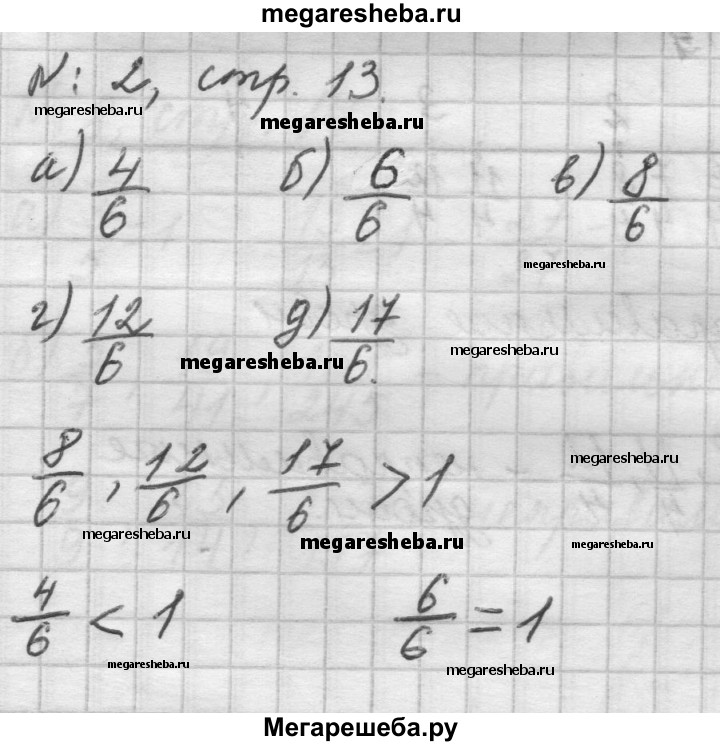 megaresheba.ru
N: 2, стр. 13.
megaresheba.ru megaresheba.ru
а) 4/6 б) 6/6 в) 8/6
megaresheba.ru
г) 12/6 д) 17/6.
megaresheba.ru megaresheba.ru
8/6, 12/6, 17/6 > 1
megaresheba.ru
megaresheba.ru megaresheba.ru megaresheba.ru
4/6 < 1 6/6 = 1
megaresheba.ru megaresheba.ru
Мегарешеба.ру